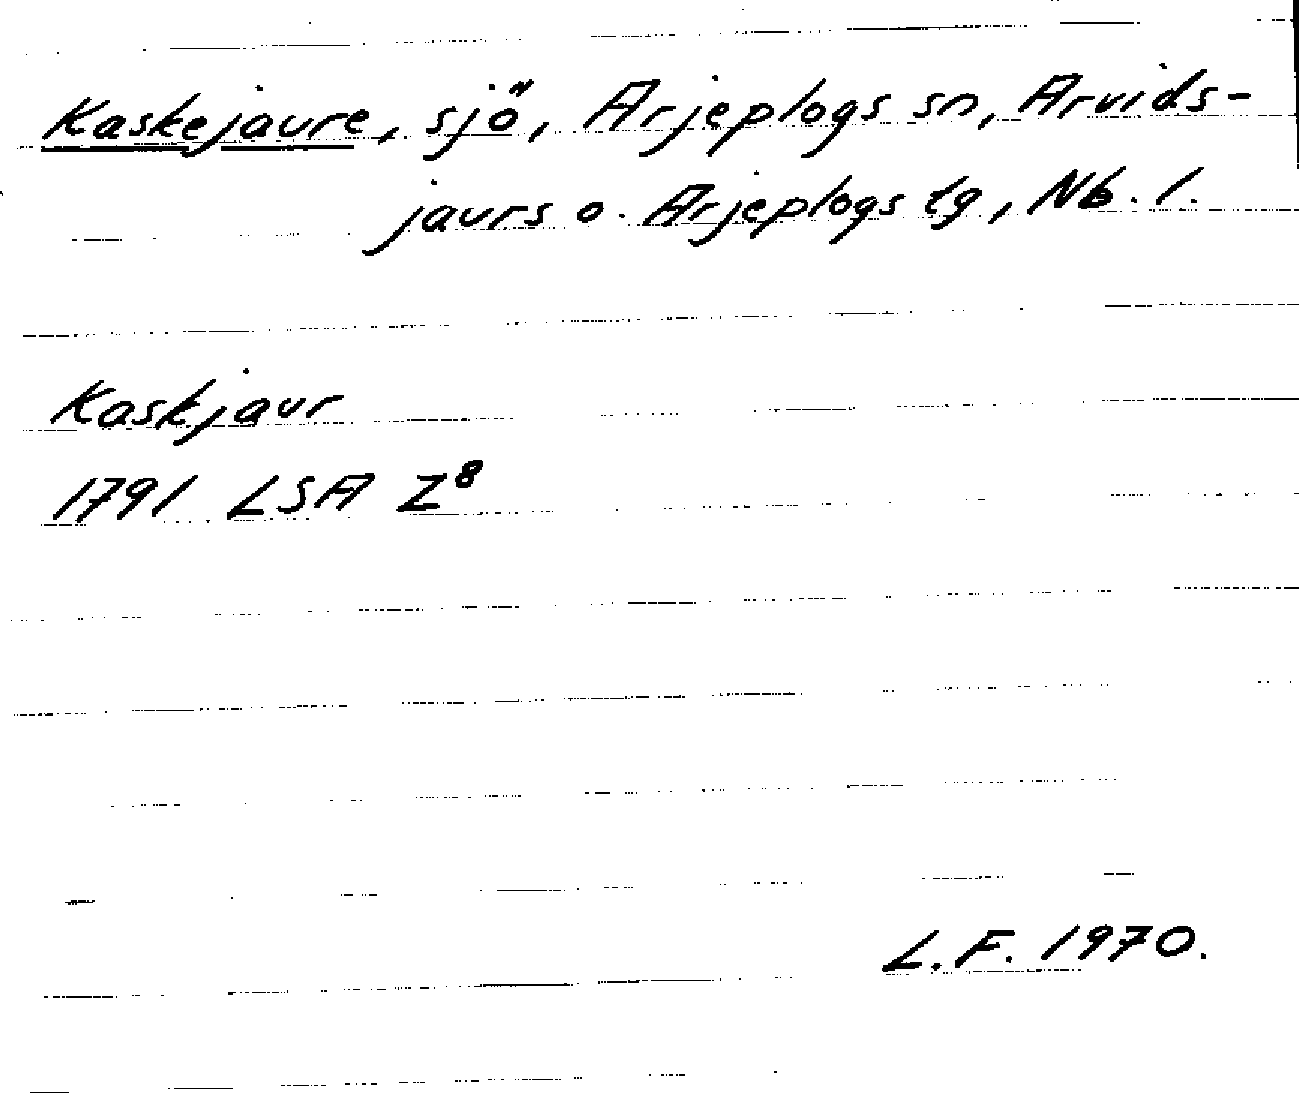 Kaskejaure, sjö, Arjeplogs sn, Arvids-
jaurs o. Arjeplogs tg, Nb. l.
Kaskjaur
1791 LSA Z⁸
L.F. 1970.